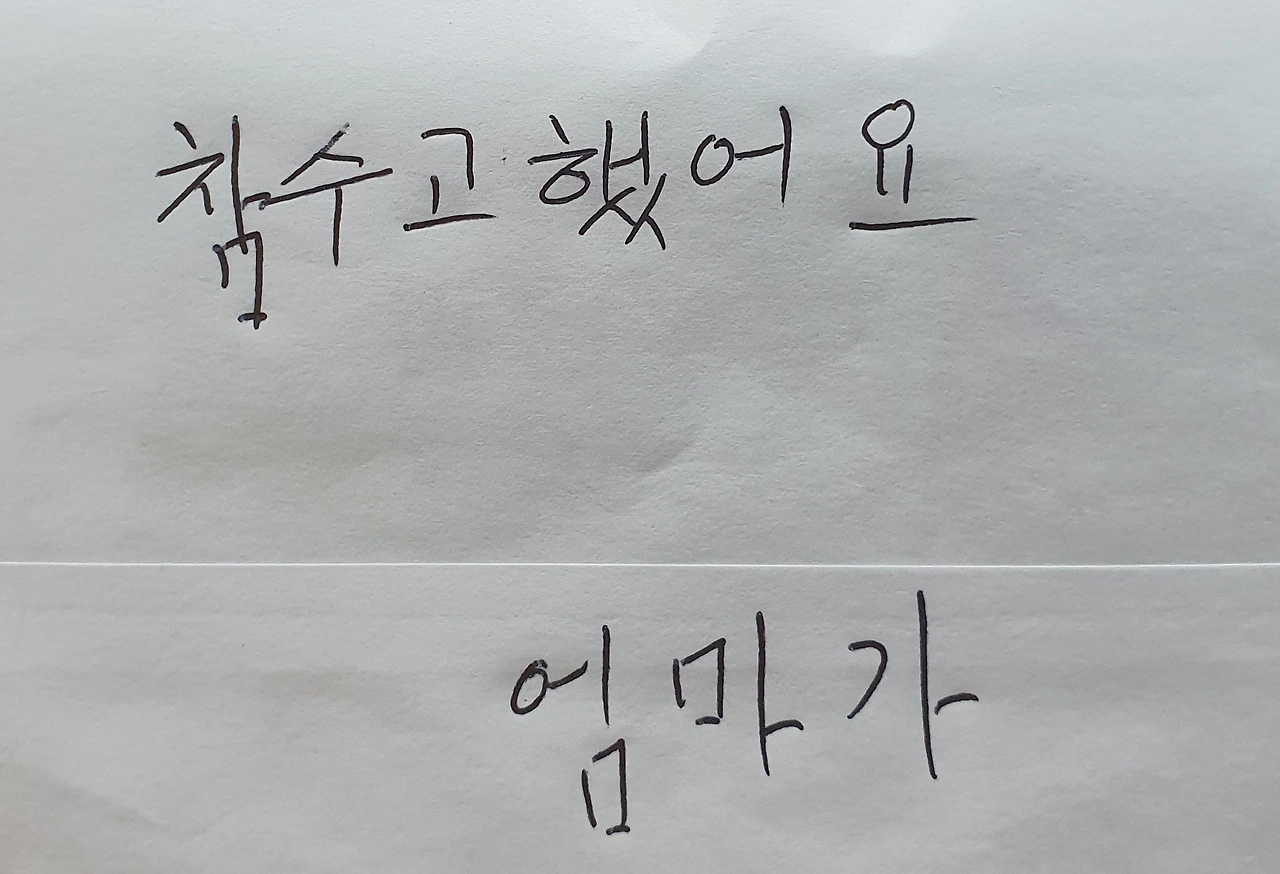 참수고했어요
엄마가